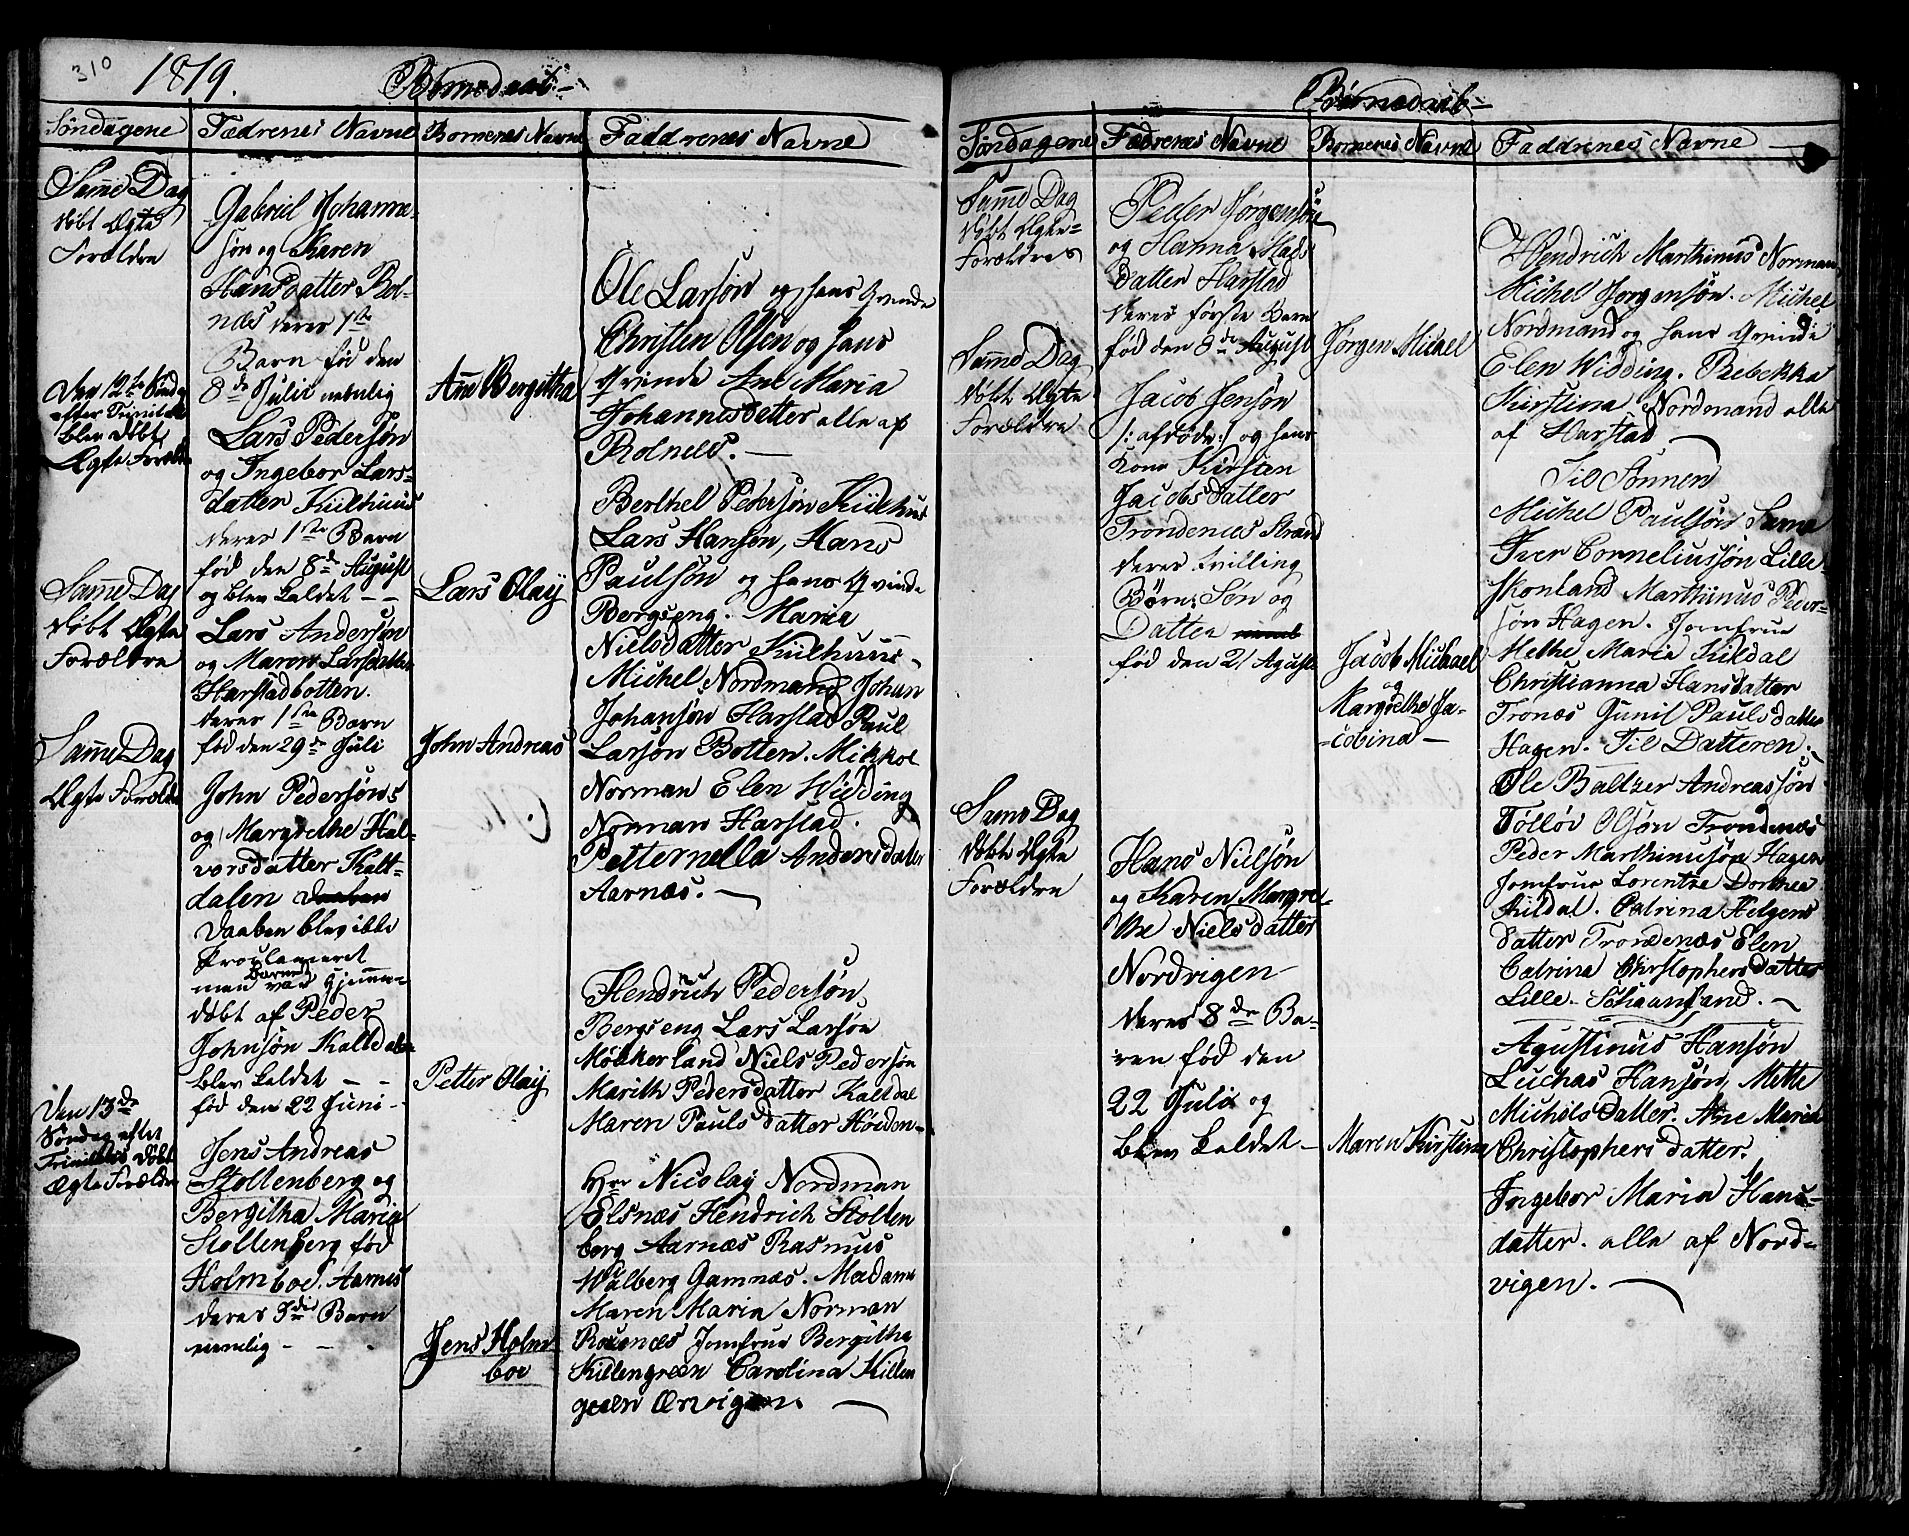 310
1819.
Børnedaab-
Søndagene
Fædrenes Navne
Bornenes Navne
Faddrenes Navne
Same Dag
døbt Ægte
Forældre
Gabriel Johanne-
søn og Karen
Hansdatter Rol-
næs deres 1ste
Barn fød den
8de Julii nemlig
Ane Bergitha
Ole Larsøn og hans Qvinde
Christen Olsen og hans
Qvinde Ane Maria
Johannesdatter alle af
Rolness. -
Den 12te Sønd.
efter Trinitatis
blev døbt
Ægte Forældre
Lars Pedersøn
og Ingebor Lars-
datter Kiilhuus
deres 1ste Barn
fød den 8de August
og blev kaldet - -
Lars Olaij
Berthel Pedersøn Kiilhuus
Lars Hansøn, Hans
Paulsøn og hans Qvinde
Bergseng. Maria
Nielsdatter Kiilhuus-
Same Dag
døbt Ægte
Forældre
Lars Andersøn
og Maren Larsdatter
Harstadbotten.
deres 1ste Barn
fød den 29de Juli
John Andreas
Michel Nordmand Johan
Johansøn Harstad Paul
Larsøn Botten. Mikkol
Norman Elen Widding
Norman Harstad.
Petternella Andersdatter
Aarnæs. -
Same Dag
Ægte Forældre
John Pedersøns
og Margrethe Hal-
vorsdatter Kalt-
dalen
Daaben blev ikke
Proclameret
men Barnet var Hjemme-
døbt af Peder
Johnsøn Kaltdalen
blev kaldet - -
fød den 22 Juni -
Petter Olaij
Hendrich Pedersøn
Bergseng Lars Larsøn
Møkkerland Niels Pedersøn
Marith Pedersdatter Kaltdal
Maren Paulsdatter
Den 13de
Søndag efter
Trinitatis døbt
Ægte Forældre
Jens Andreas
Stoltenberg og
Bergitha Maria
Stoltenberg fød
Holmboe. Aarnes
deres 3die Barn
nemlig - -
Jens Holm
boe
Hrr Nicolay Nordman
Elsnæs Hendrich Stolten
berg Aarnæs Rasmus
Walberg Gamnæs. Madame
Maren Maria Norman
Jomfrue Bergitha
Killengreen Carolina Killen
green Ærvigen. -
Børnedaab-
Søndagene
Fædrenes Navne
Bornenes Navne
Faddrenes Navne
Same Dag
døbt Ægte-
Forældres
Peder Jørgensøn
og Hanna Mads
datter Harstad
deres første Barn
fød den 8de August
Jørgen Michel
Hendrich Marthinus Norman
Michel Jørgensøn. Michel
Nordmand og hans Qvinde
Elen Widding. Rebekka
Kirstina Nordmand alle
af Harstad -
Same Dag
døbt Ægte
Forældre
Jacob Jensøn
/: afdøde :/ og hans
Kone Kirsten
Jacobsdatter
Trondenes Strand
deres tvilling
Børn: Søn og
Datter
fød den 21 Agusti
Jacob Michael
og
Margrethe Ja-
-cobina -
Til Sønnen
Michel Paulsøn Same
Iver Corneliussøn Lille-
skonland Marthinus Peder-
søn Hagen. Jomfrue
Methe Maria Kildal
Christianna Hansdatter
Tronæs Gunil Paulsdatter
Hagen. Til Datteren.
Ole Baltzer Andreassøn
Tolløv Olsøn Trondenæs
Peder Marthinusøn Hagen
Jomfrue Lorentze Dorthea
Kildal. Catrina Helgens
datter Trondenæs Elen
Catrina Christophersdatter
Lille- -
Same Dag
døbt Ægte
Forældre
Hans Nielsøn
og Karen Margre-
the Nielsdatter
Nordvigen
deres 8de Ba-
ren fød den
22 Juli og
blev kaldet -
Maren Kirstina
Agustinus Hansøn
Luchas Hansøn, Mette
Michelsdatter. Ane Maria
Christophersdatter.
Ingebor Maria Hans-
datter. alle af Nord-
vigen. -